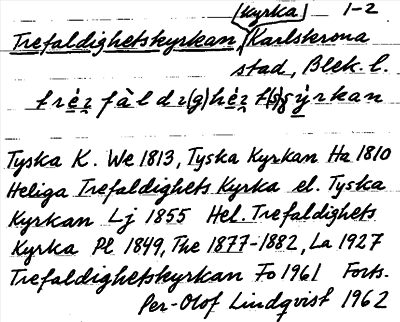 (kyrka) 1-2
Trefaldighetskyrkan, Karlskrona
stad, Blek. l.
Tyska K. We 1813, Tyska Kyrkan Ha 1810
Heliga Trefaldighets Kyrka el. Tyska
Kyrkan Lj 1855 Hel. Trefaldighets
Kyrka Pl 1849, The 1877-1882, La 1927
Trefaldighetskyrkan Fo 1961 Forts.
Per-Olof Lindqvist 1962